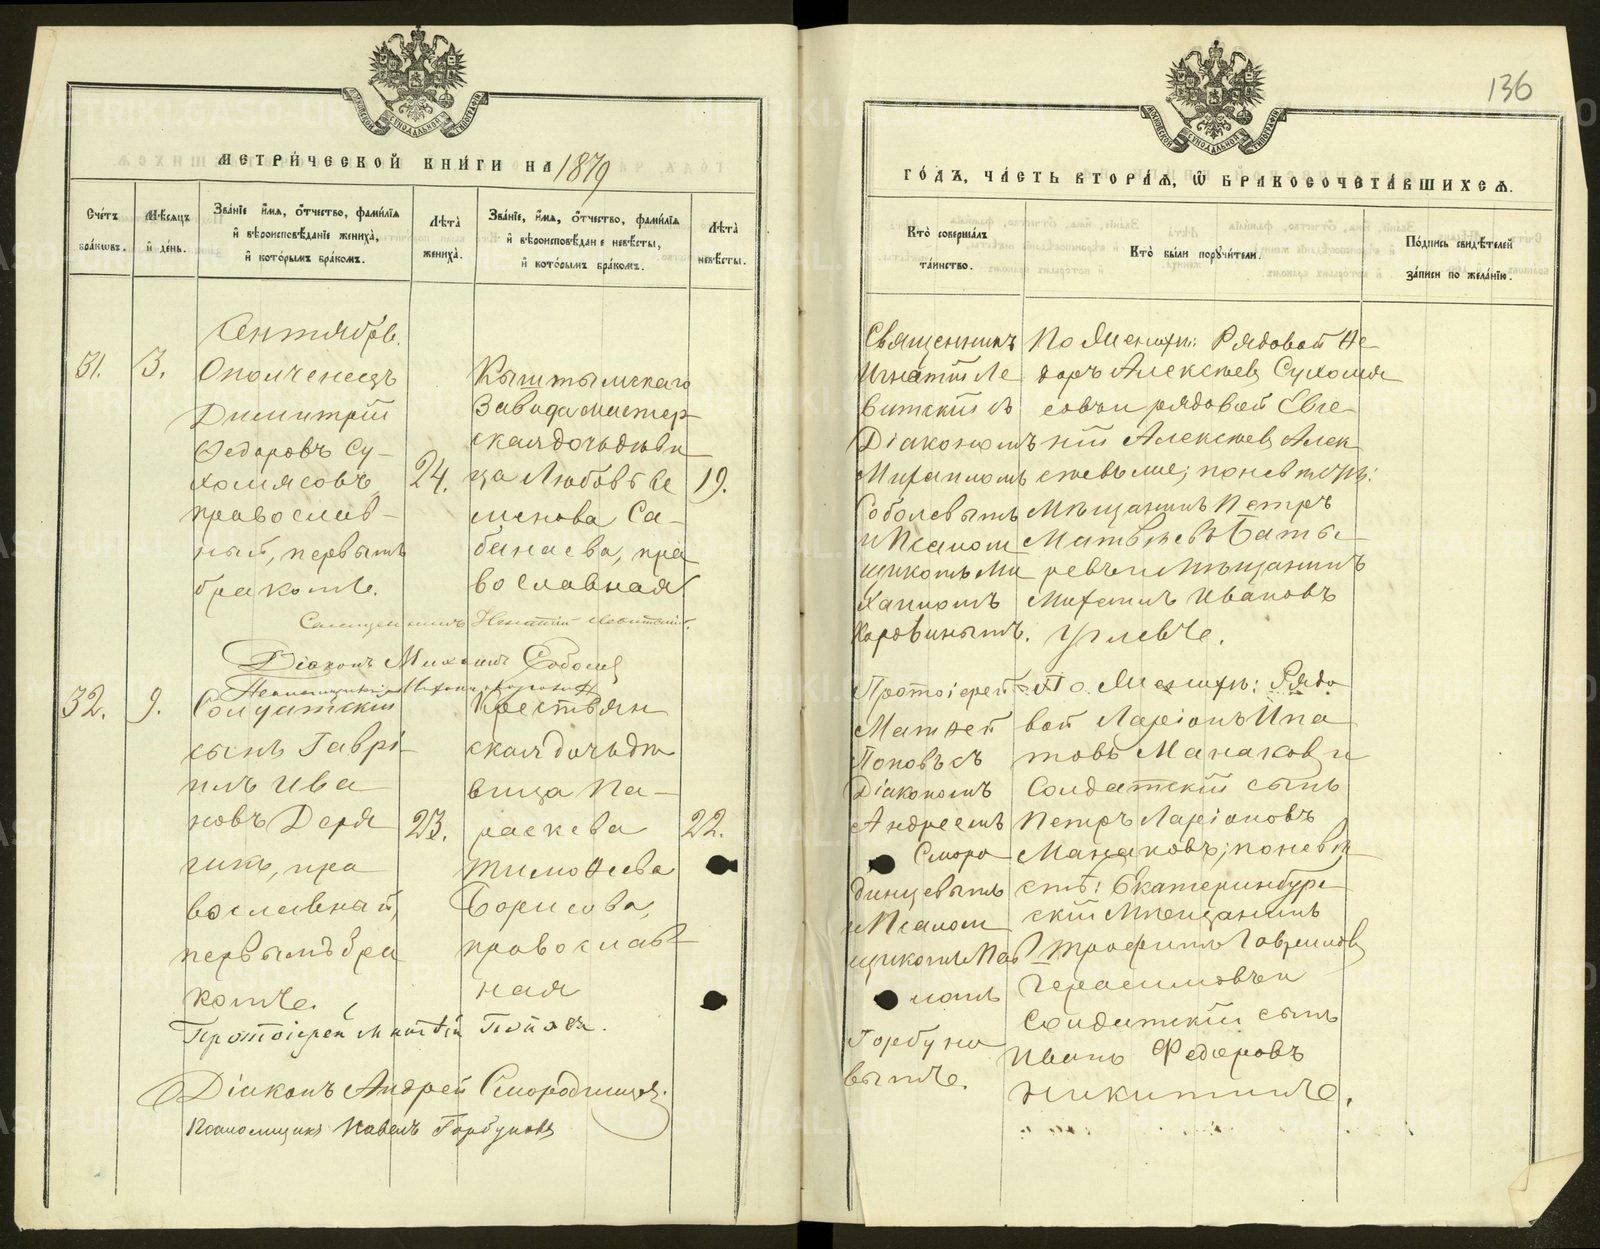 МЕТРИ́ЧЕСКОЙ КНИ́ГИ НА 1879
Счетъ бра́ковъ.
Мѣсяцъ и де́нь.
Зва́ніе, и́мя, о́тчество, фами́лія и вѣроисповѣ́даніе жениха̀, и кото́рымъ бра́комъ.
Лѣта̀ жениха̀.
Зва́ніе, и́мя, о́тчество, фами́лія и вѣроисповѣ́дан е невѣ́сты, и кото́рымъ бра́комъ.
Лѣта̀ невѣ́сты.
Сентябрь.
31. 3.
Ополченецъ
Димитрій
Ѳедоровъ Су-
хомясовъ
православ-
ный, первымъ
бракомъ.
24.
Кыштымскаго
Завода мастер-
ская дочь дѣви
ца Любовь Се
менова Са-
банаева, пра
вославная
19.
Священникъ Игнатій Левитскій.
Діаконъ Михаилъ Соболев
Псаломщикъ Михаилъ
32. 9.
Солдатскій
сынъ Гаврі-
илъ Ива
новъ Деря
гинъ, пра
вославный,
первымъ бра
комъ.
23.
Крестьян
ская дочь дѣ
вица Па-
раскева
Тимоѳеева
Борисова,
православ-
ная
22.
Протоіерей Матѳей Поповъ.
Діаконъ Андрей Смородинцев.
Псаломщикъ Павелъ Горбуновъ
136
ГО́ДЪ, ЧА́СТЬ ВТОРА́Я, Ѽ БРАКОСОЧЕТА́ВШИХСЯ.
Кто̀ соверша́лъ та́инство.
Кто̀ бы́ли поручи́тели.
По́дпись свидѣ́телей за́писи по жела́нію.
Священникъ
Игнатій Ле
витскій съ
Діакономъ
Михаиломъ
Соболевымъ
и Псалом
щикомъ Ми
хаиломъ
Коровинымъ.
По Женихѣ: Рядовой Ѳе-
доръ Алексѣев Сухомя
совъ и рядовой Евге-
ній Алексѣев Алек
сѣевъ; по невѣстѣ:
Мѣщанинъ Петръ
Матвѣевъ Баты
ревъ и Мѣщанинъ
Михаилъ Ивановъ
Углевъ.
Протоіерей
Матѳей
Поповъ съ
Діакономъ
Андреемъ
Сморо
динцевымъ
и Псалом
щикомъ Пав
ломъ
Горбуно
вымъ.
По Женихѣ: Рядо
вой Ларіонъ Ипа
товъ Манаков и
Солдатскій сынъ
Петръ Ларіоновъ
Манаковъ; по невѣ
стѣ: Екатеринбург
скій Мѣщанинъ
Трофимъ Гавриилов
Герасимовъ и
Солдатскій сынъ
Иванъ Федоровъ
Никитинъ.